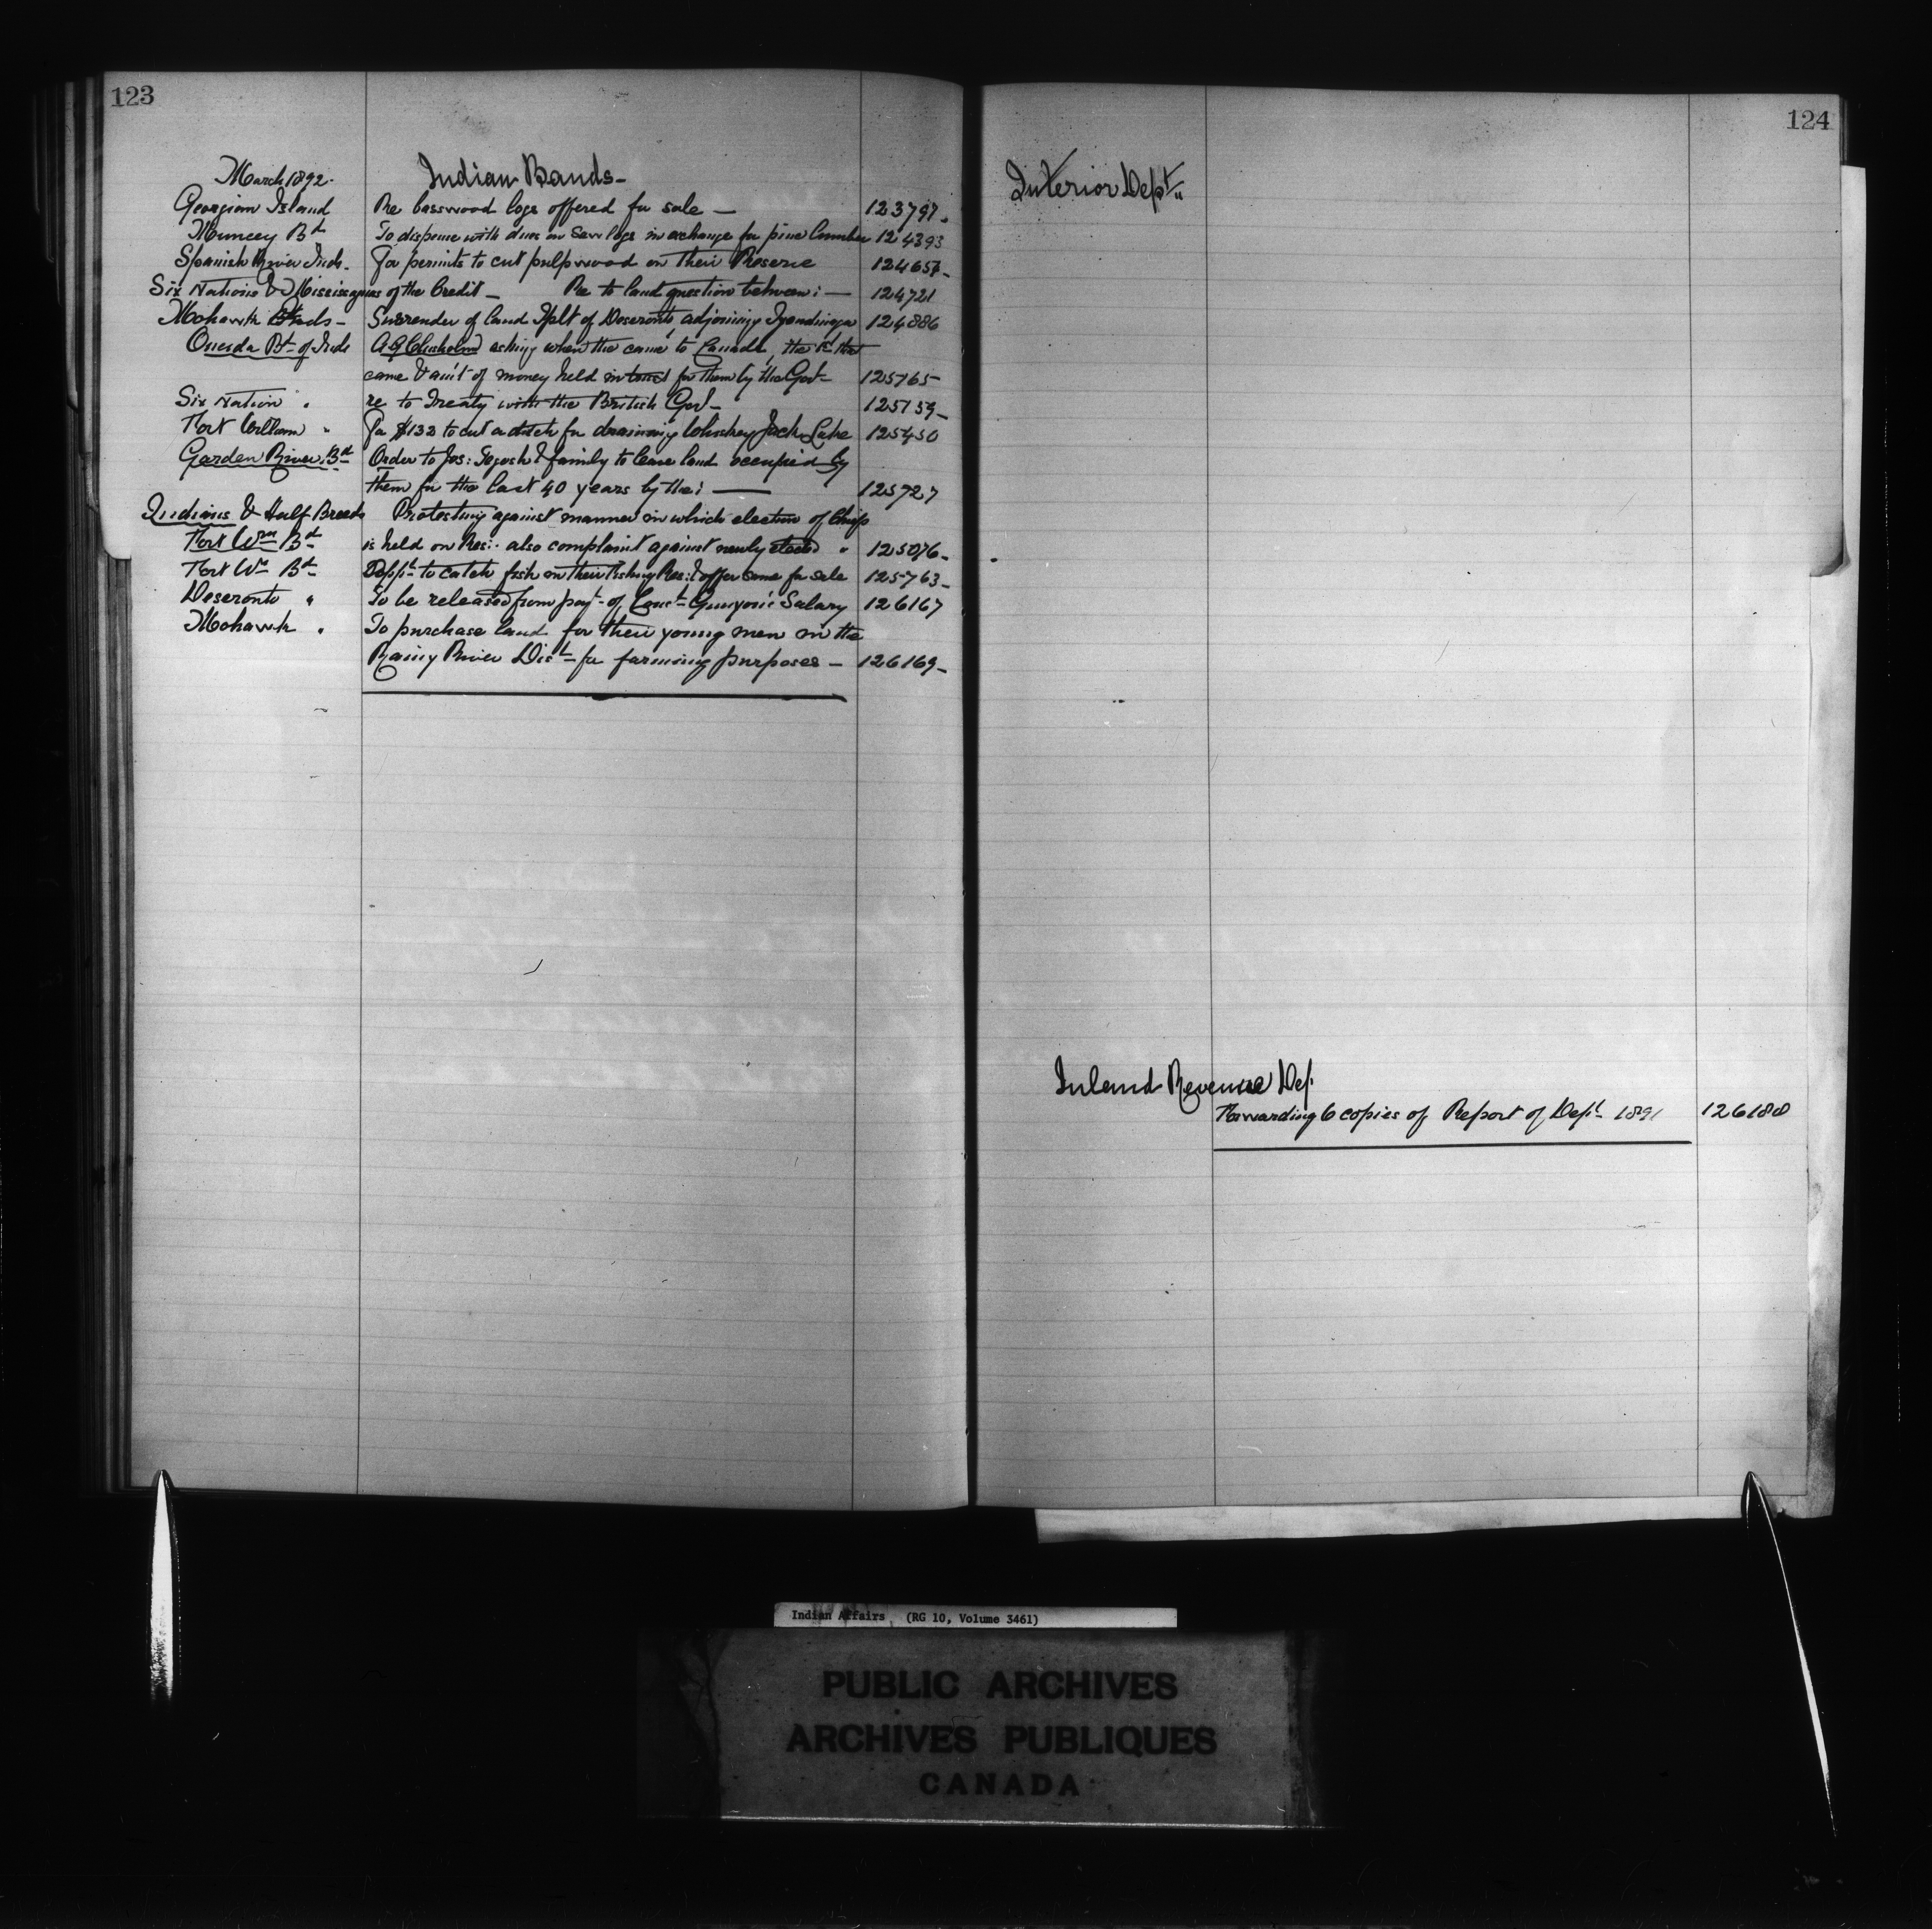 123
March 1892. Indian Bands—
Georgian Island Re basswood logs offered for sale — 123797.
Muncey Bd To dispense with dues on saw logs in exchange for pine lumber 124393
Spanish River Inds. For permits to cut pulpwood on their Reserve 124657-
Six Nations & Mississaguas of the Credit — Re to land question between: — 124721
Mohawk Inds- Surrender of land Iplt of Deseronto adjoining Tyendinaga 124886
Oneida Bd of Inds A.G. Chisholm asking when the came to Canada, the that
came & am't of money held in trust for them by the Govt- 125165-
Six Nation " re to Treaty with the British Govt- 125159-
Fort William " For $132 to cut a ditch for draining Whiskey Jack Lake 125450
Garden River Bd Order to Jos: & family to leave land occupied by
them for the last 40 years by the: — 125727
Indians & Half Breeds Protesting against manner in which election of Chiefs
Fort Wm Bd is held on Res:. also complaint against newly elected " 125076-
Fort Wm Bd to catch fish on their Fishing Res: & offer same for sale 125763-
Deseronto " To be released from payt- of Const- Salary 126167
Mohawk " To purchase land for their young men in the
Rainy River Dist- for farming purposes — 126169-
124
Interior Dept"
Inland Revenue Dep.
Forwarding 6 copies of Report of Dept- 1891 126180
Indian Affairs (RG 10, Volume 3461)
PUBLIC ARCHIVES
ARCHIVES PUBLIQUES
CANADA